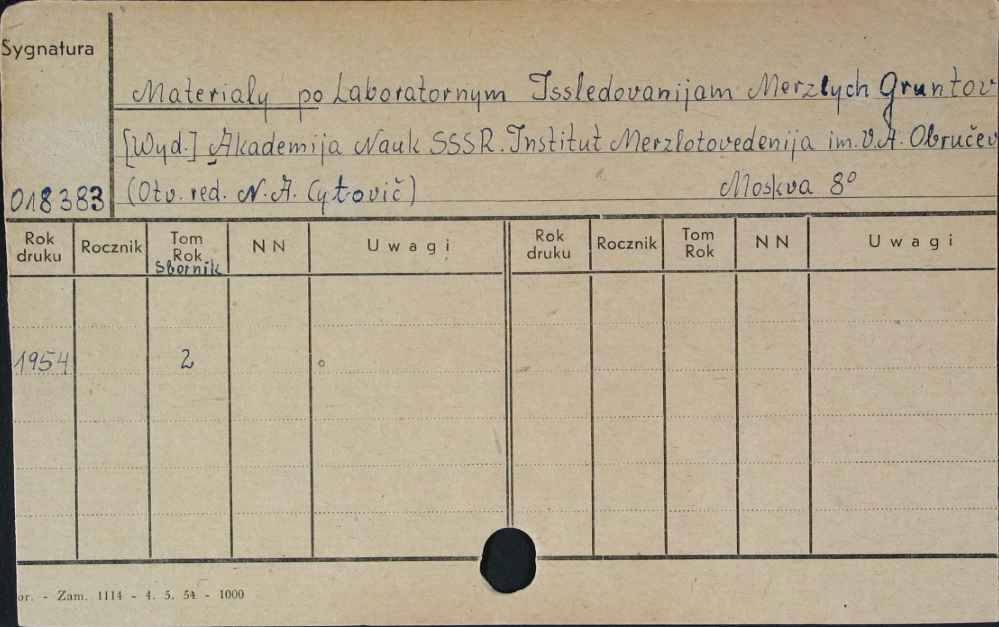 Sygnatura
Materialy po Laboratornym Issledovanijam Merzlych Gruntov
[Wyd.] Akademija Nauk SSSR. Institut Merzlotovedenija im. V. A. Obručev
018383 (Otv. red. N. A. Cytovič) Moskva 8°
Rok druku Rocznik Tom Rok Sbornik N N Uwagi Rok druku Rocznik Tom Rok N N Uwagi
1954 2
or. - Zam. 1114 - 4. 5. 54 - 1000